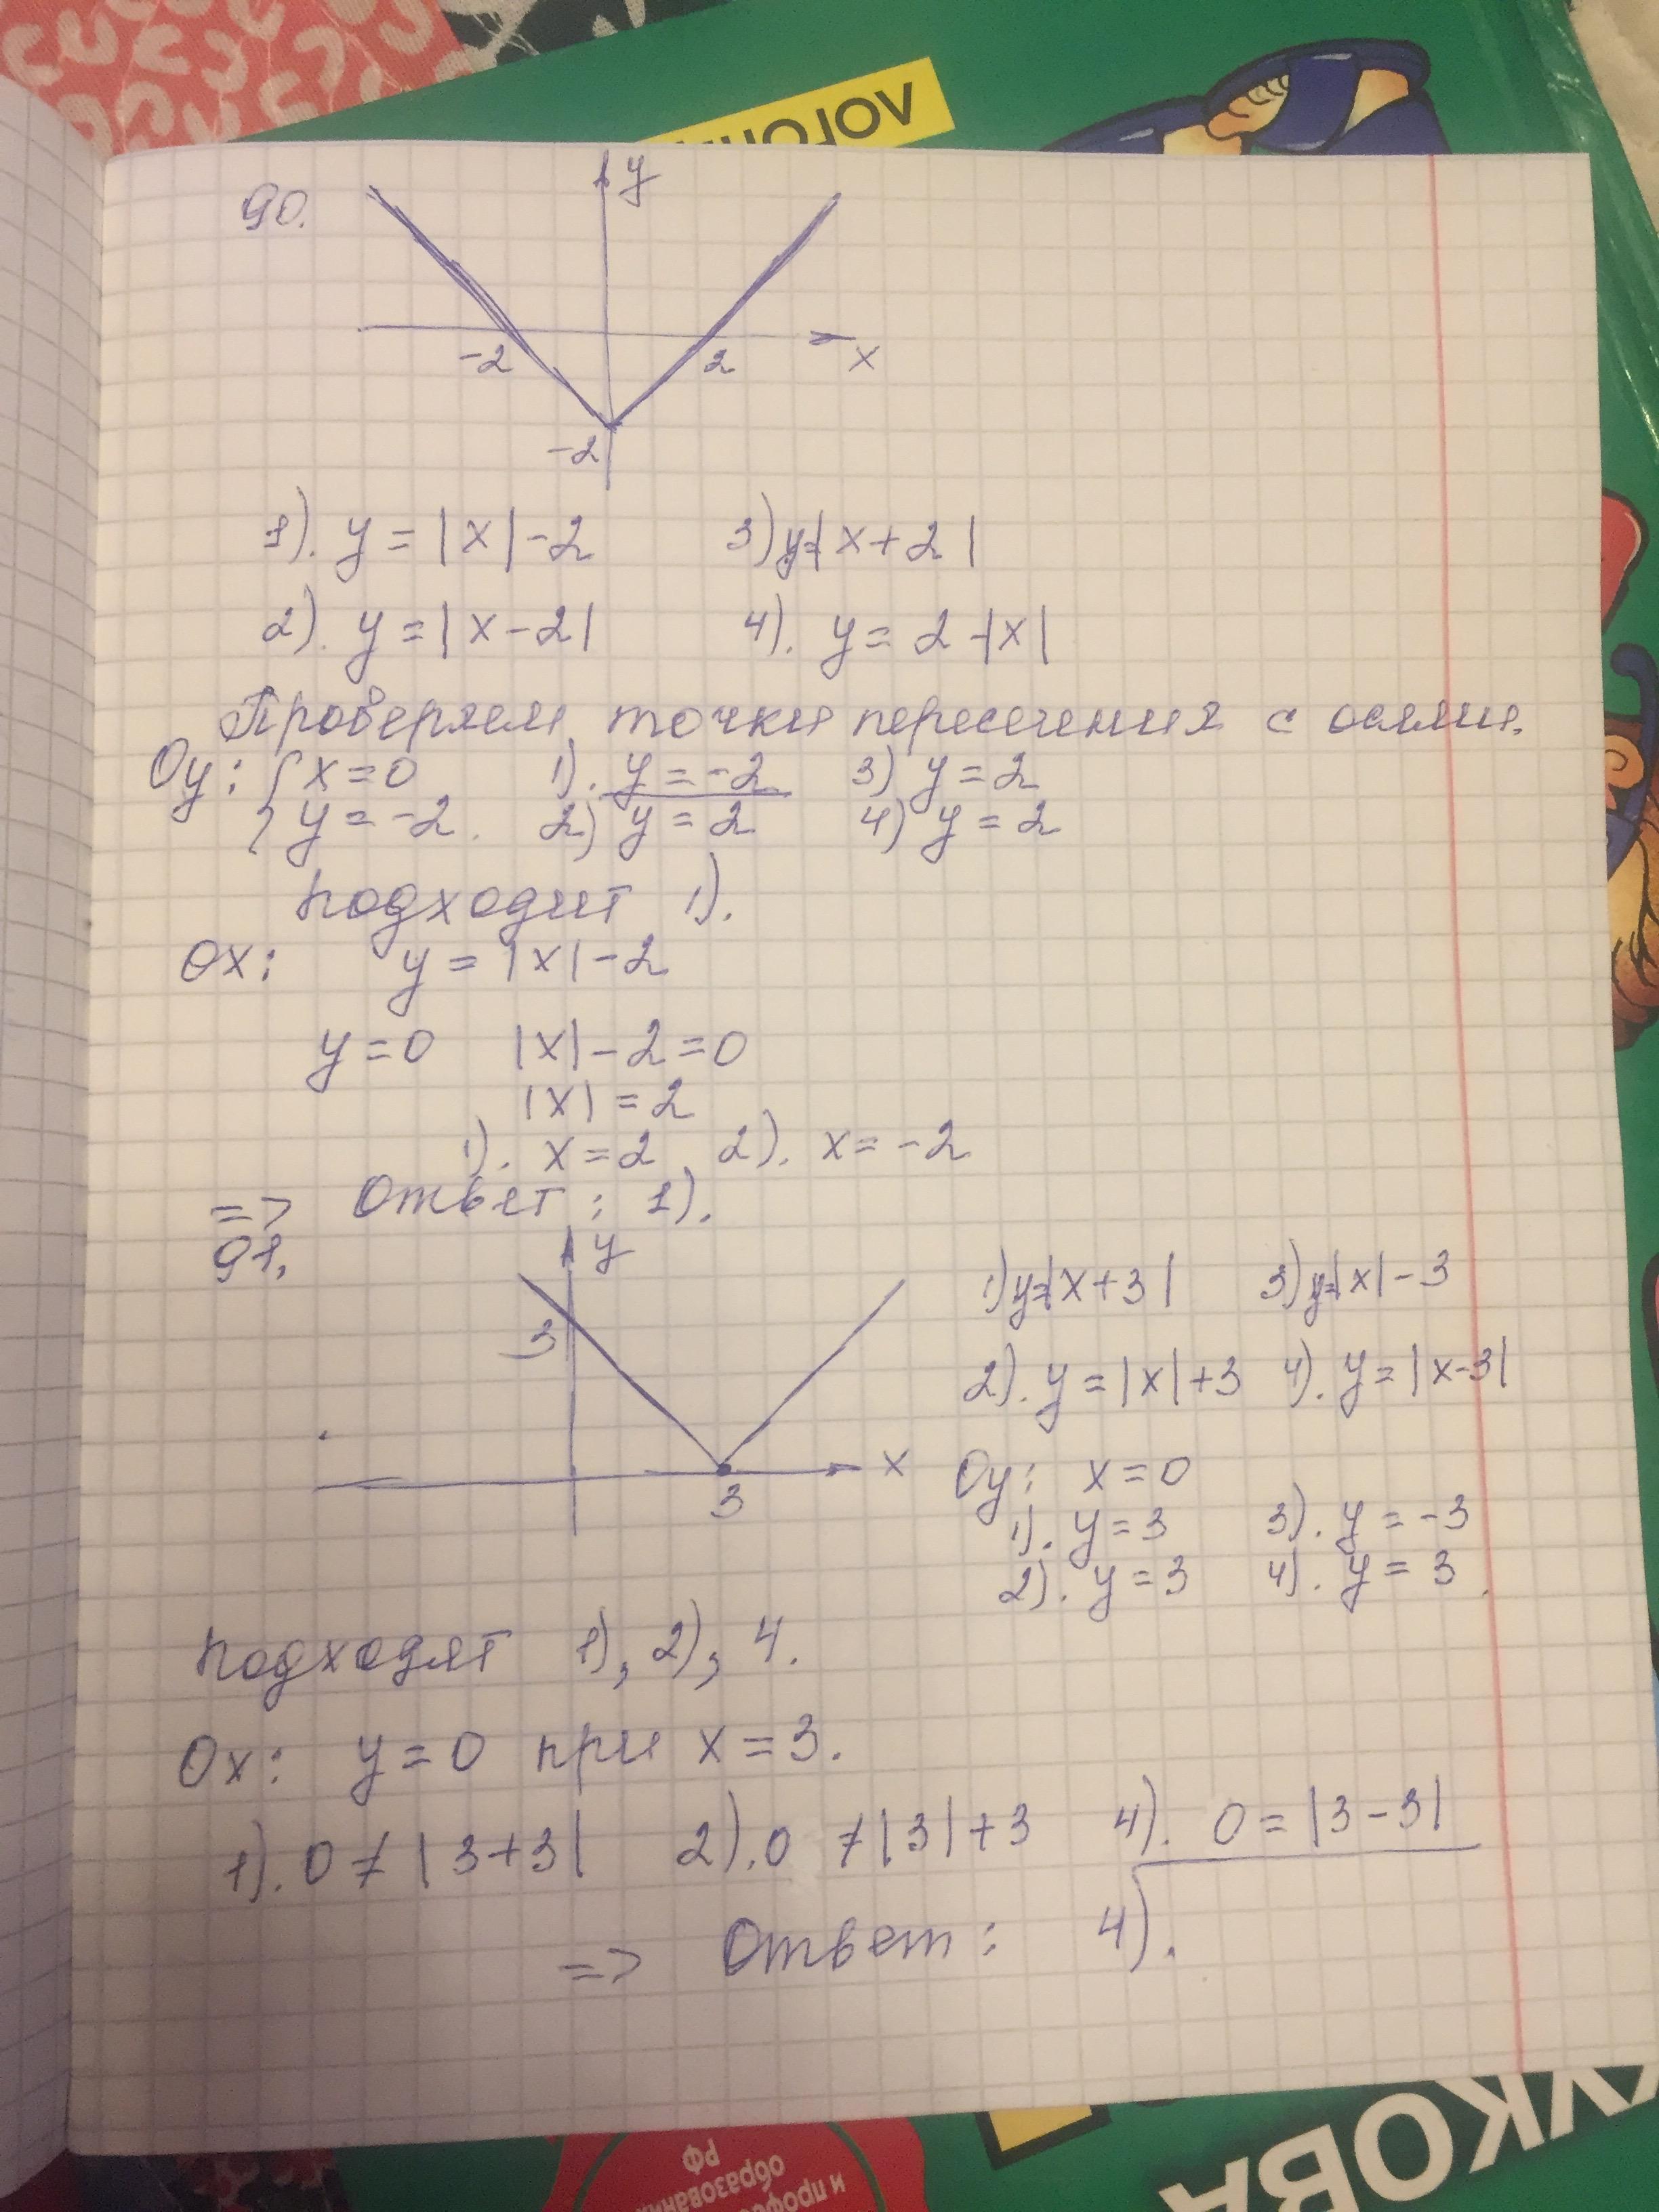 90.
y
-2
2
x
-2
1). y = |x| - 2 3) y=|x + 2|
2). y = |x - 2| 4). y = 2 - |x|
Проверяем точки пересечения с осями.
Oy: { x = 0 1). y = -2 3) y = 2
y = -2. 2) y = 2 4) y = 2
подходит 1).
Ox: y = |x| - 2
y = 0 |x| - 2 = 0
|x| = 2
1). x = 2 2). x = -2
=> Ответ: 1).
91.
y
3
x
3
1) y=|x + 3| 3) y=|x| - 3
2). y = |x| + 3 4). y = |x - 3|
Oy: x = 0
1). y = 3 3). y = -3
2). y = 3 4). y = 3.
подходят 1), 2), 4.
Ox: y = 0 при x = 3.
1). 0 ≠ |3 + 3| 2). 0 ≠ |3| + 3 4). 0 = |3 - 3|
=> Ответ: 4).
УКОВА
и профе
образован
РФ